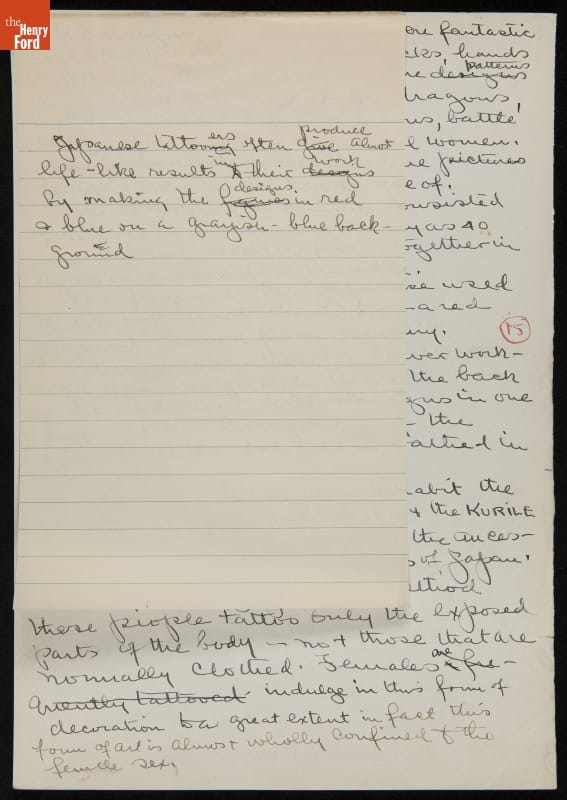 the
Henry
Ford
Japanese tattooers often give produce almost
life-like results in their designs work
by making the figures designs in red
& blue on a grayish-blue back-
ground
ore fantastic
cks, hands
designs patterns
dragons,
battle
women.
pictures
e of.
onsisted
y as 40
ogether in
se used
a red
15
ever work-
the back
in one
- the
in
abit the
& the KURILE
the ances-
s of Japan.
these people tattoo only the exposed
parts of the body — not those that are
normally clothed. Females are fre-
quently tattooed indulge in this form of
decoration to a great extent in fact this
form of art is almost wholly confined to the
female sex.